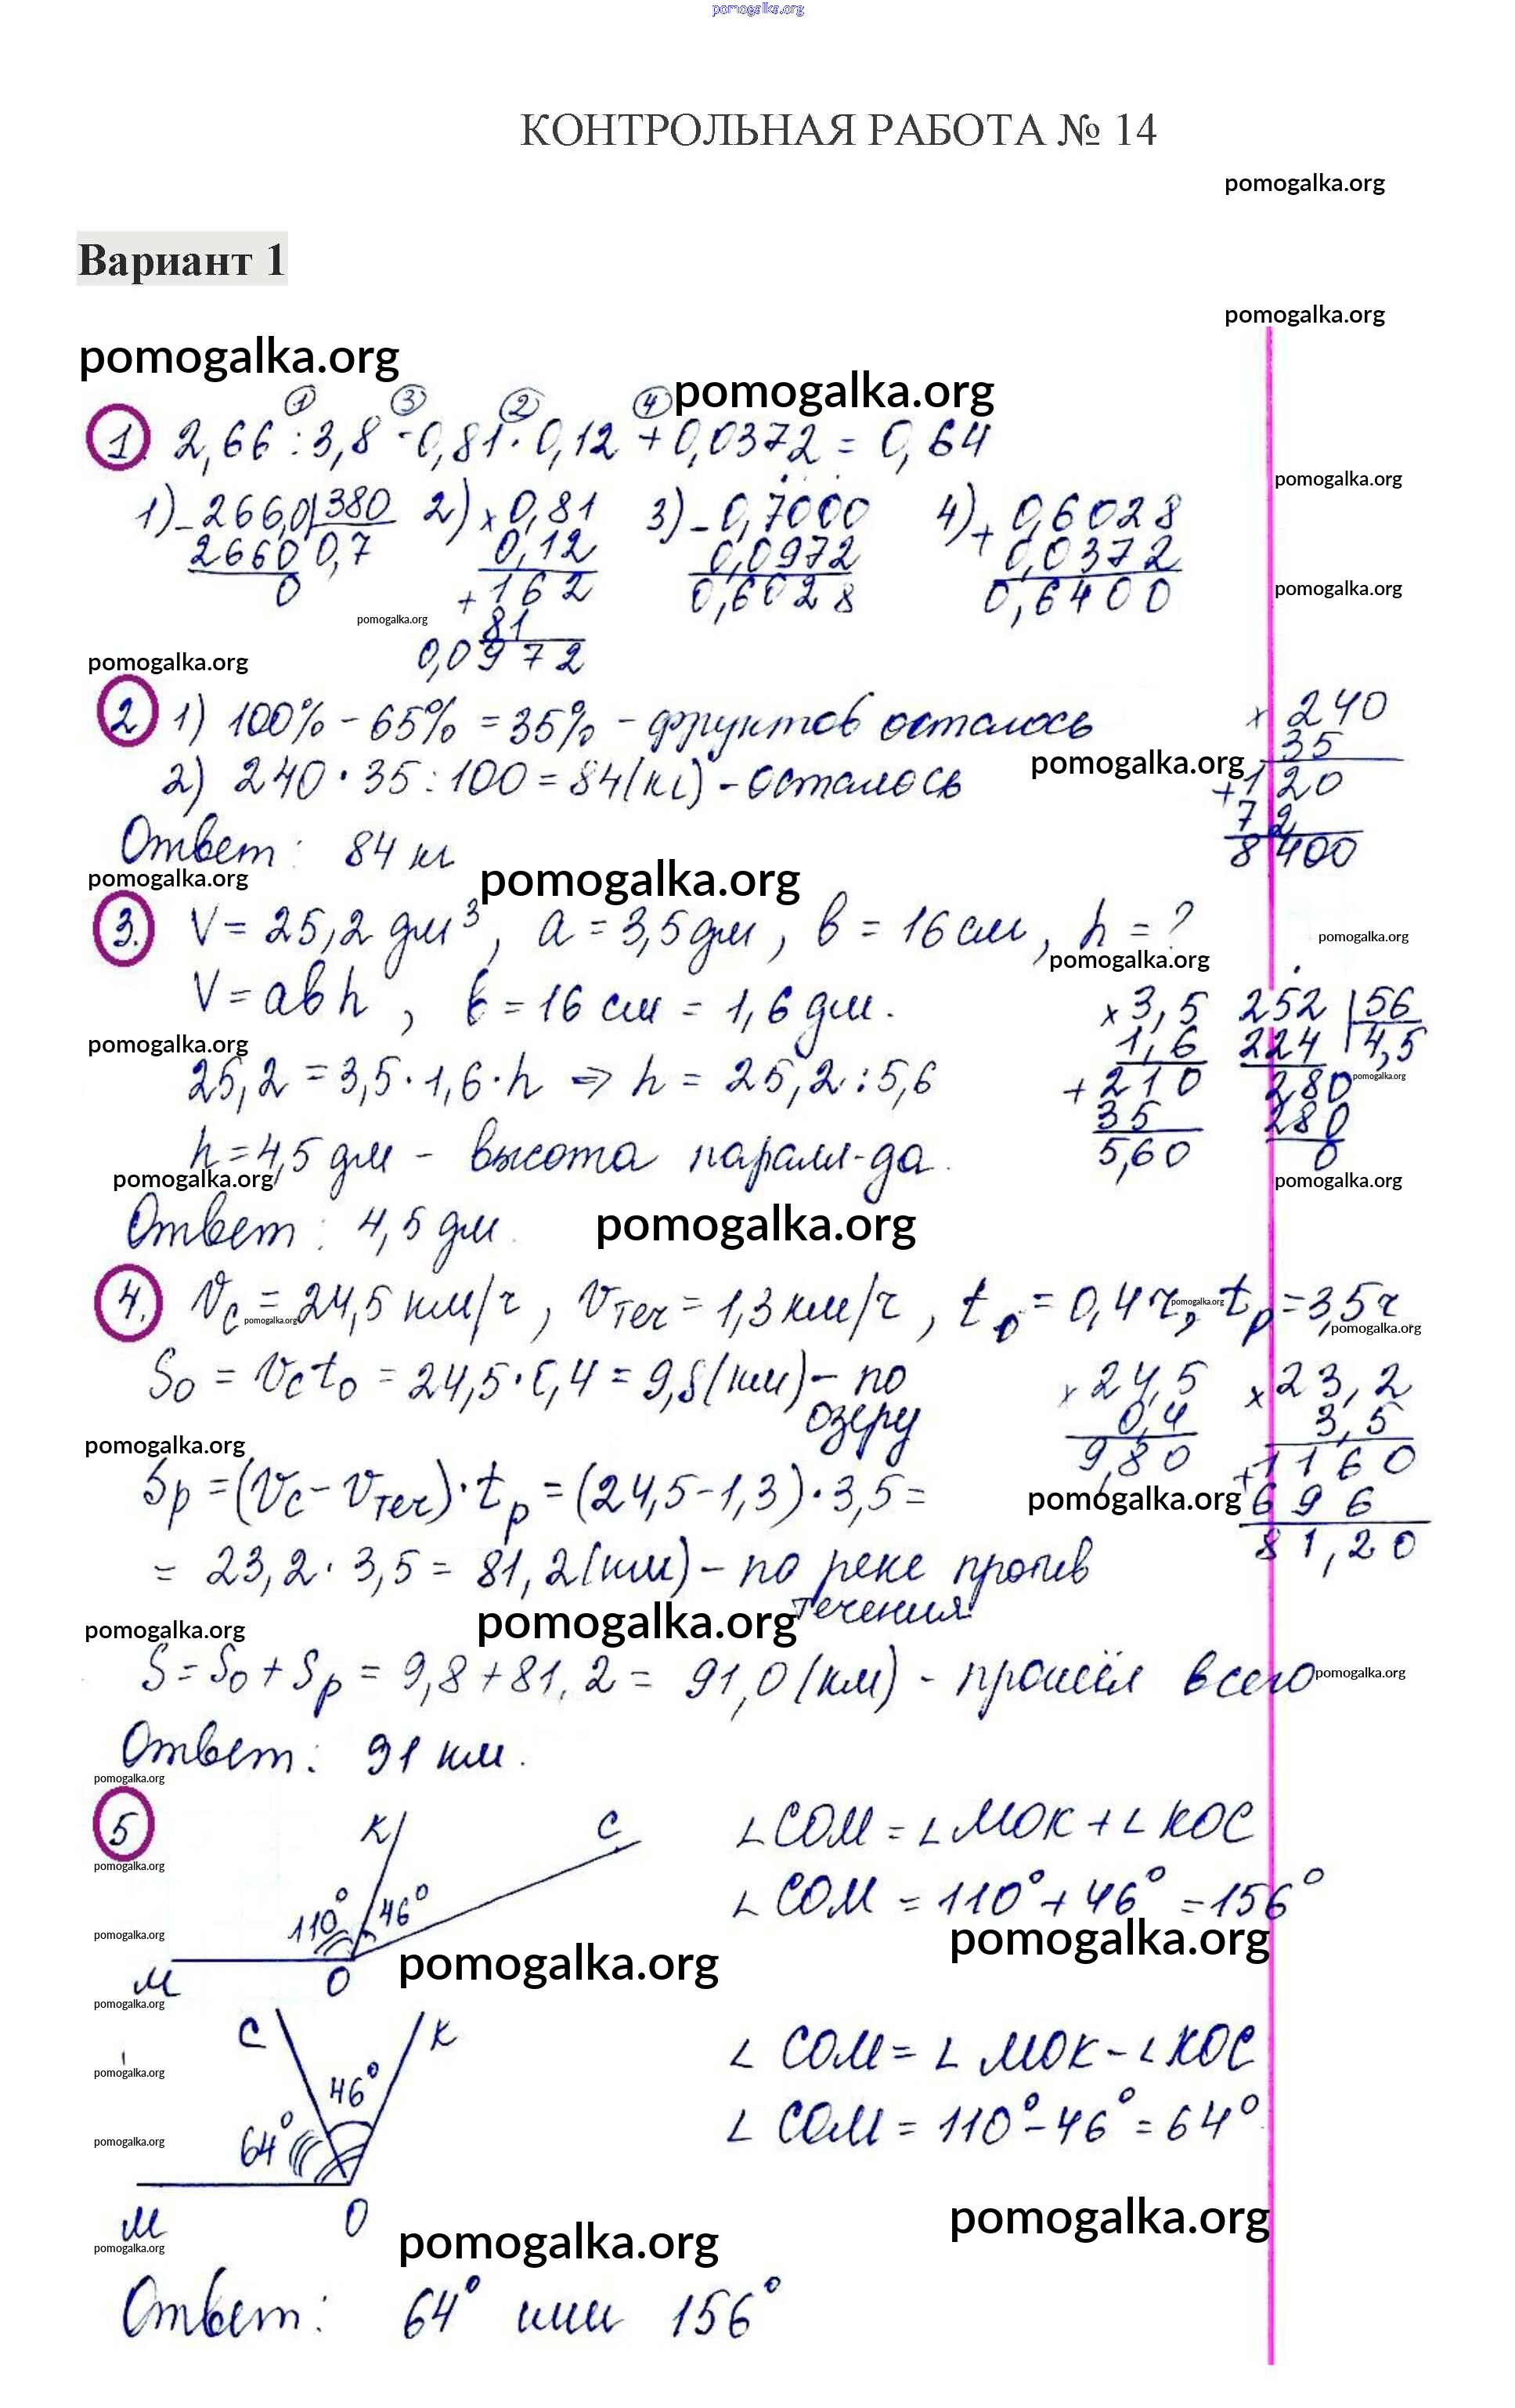 pomogalka.org
КОНТРОЛЬНАЯ РАБОТА № 14
pomogalka.org
Вариант 1
pomogalka.org
pomogalka.org
pomogalka.org
① ③ ② ④
1. 2,66 : 3,8 - 0,81 · 0,12 + 0,0372 = 0,64
pomogalka.org
1) - 266,0 | 380 2) × 0,81 3) - 0,7000 4) + 0,6028
2660 0,7 0,12 0,0972 0,0372
0 + 162 0,6028 0,6400
pomogalka.org
pomogalka.org
81
0,0972
pomogalka.org
2 1) 100% - 65% = 35% - фруктов осталось × 240
35
2) 240 · 35 : 100 = 84 (кг) - осталось pomogalka.org + 120
72
Ответ: 84 кг 8400
pomogalka.org pomogalka.org
3. V = 25,2 дм³, a = 3,5 дм, b = 16 см, h = ? pomogalka.org
pomogalka.org
V = abh, b = 16 см = 1,6 дм. × 3,5 252 | 56
pomogalka.org 1,6 224 4,5
25,2 = 3,5 · 1,6 · h ⇒ h = 25,2 : 5,6 + 210 280 pomogalka.org
35 280
h = 4,5 дм - высота паралл-да. 5,60 0
pomogalka.org pomogalka.org
Ответ: 4,5 дм. pomogalka.org
4. Vc = 24,5 км/ч, Vтеч = 1,3 км/ч, to = 0,4 ч, tp = 3,5 ч
pomogalka.org pomogalka.org pomogalka.org
So = Vc to = 24,5 · 0,4 = 9,8 (км) - по × 24,5 × 23,2
озеру 0,4 3,5
pomogalka.org 9,80 1160
Sp = (Vc - Vтеч) · tp = (24,5 - 1,3) · 3,5 = pomogalka.org + 696
= 23,2 · 3,5 = 81,2 (км) - по реке против 81,20
течения
pomogalka.org pomogalka.org
S = So + Sp = 9,8 + 81,2 = 91,0 (км) - прошёл всего pomogalka.org
Ответ: 91 км.
pomogalka.org
5 K C ∠COM = ∠MOK + ∠KOC
pomogalka.org
110° 46° ∠COM = 110° + 46° = 156°
pomogalka.org pomogalka.org pomogalka.org
M O
pomogalka.org
C K ∠COM = ∠MOK - ∠KOC
pomogalka.org
46°
64° ∠COM = 110° - 46° = 64°
pomogalka.org
M O pomogalka.org
pomogalka.org pomogalka.org
Ответ: 64° или 156°